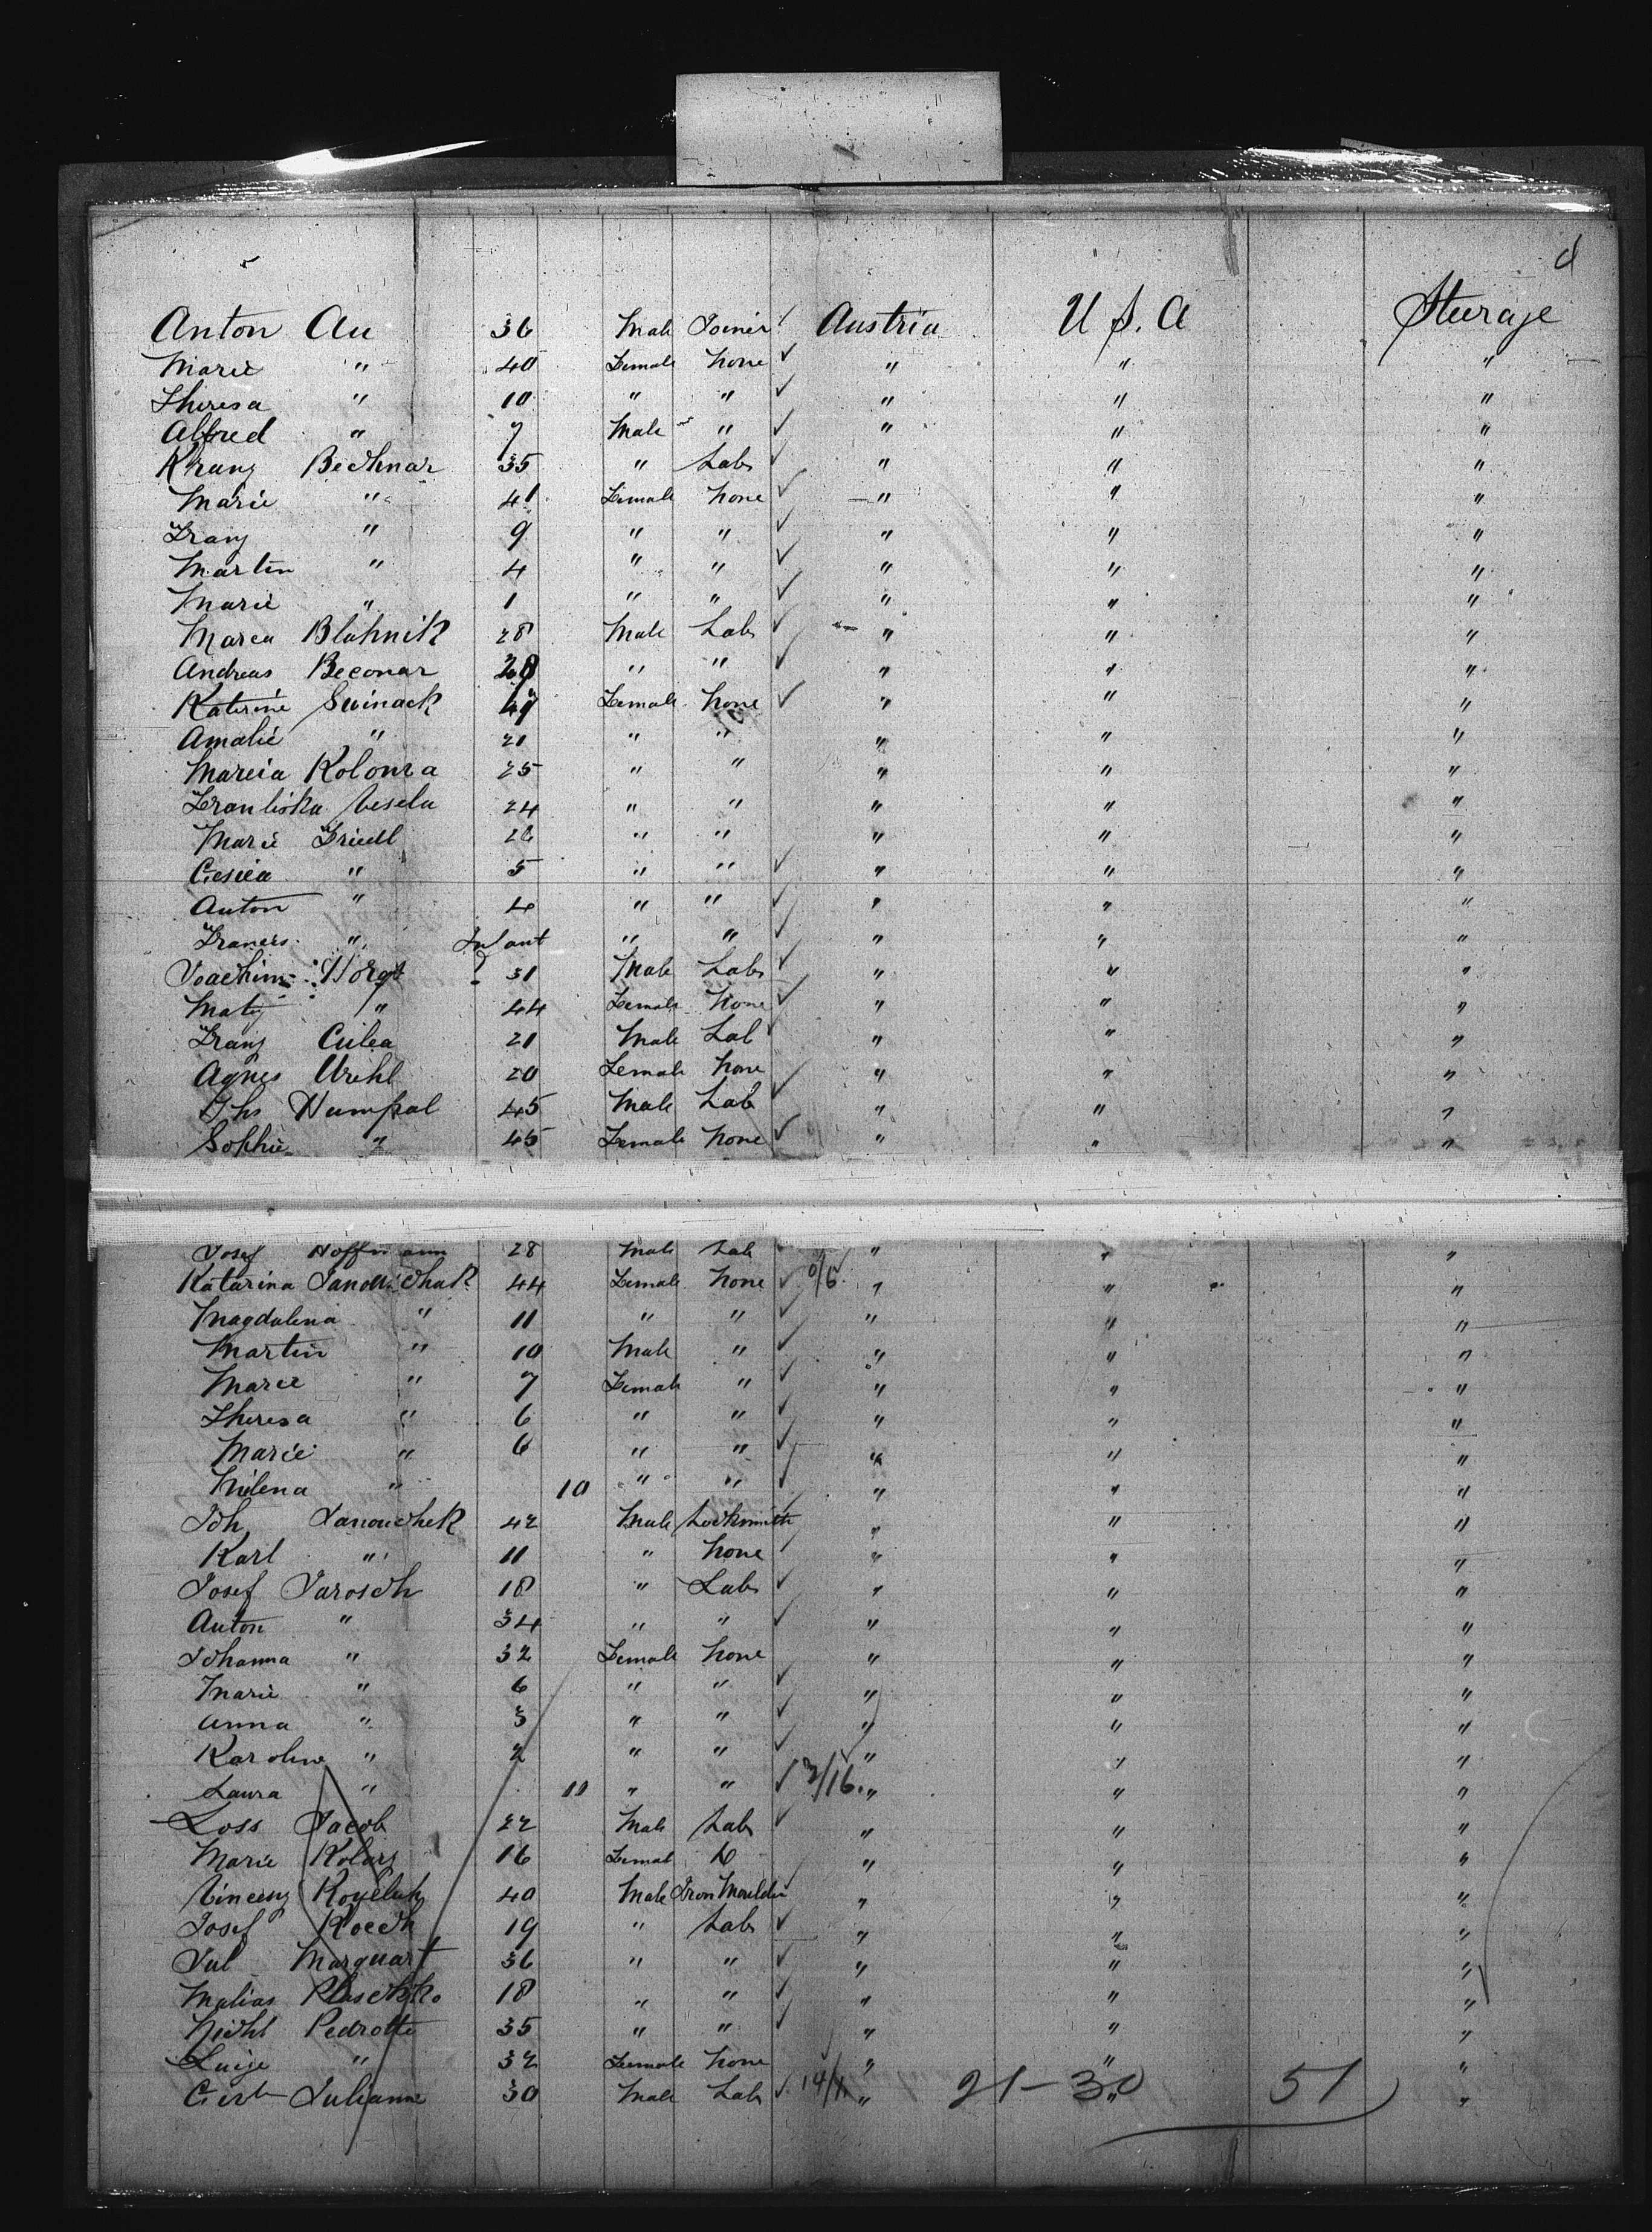 d
Anton Au 36 Male Joiner Austria U.S.A Steerage
Marie " 40 Female None " " "
Theresa " 10 " " " " "
Alfred " 7 Male " " " "
Krany Bechnar 35 " Labr " " "
Marie " 41 Female None " " "
Frany " 9 " " " " "
Martin " 4 " " " " "
Marie " 1 " " " " "
Marea Blahnik 28 Male Labr " " "
Andreas Beconar 28 " " " " "
Katerine Swinack 49 Female None " " "
Amalie " 21 " " " " "
Mareia Kolonra 25 " " " " "
Frantiska Vesela 24 " " " " "
Marie Friedl 26 " " " " "
" 5 " " " " "
Anton " 4 " " " " "
Francis " Infant " " " " "
Joachim 31 Male Labr " " "
Maty " 44 Female None " " "
Frany Cuilea 21 Male Lab " " "
Agnes Urehl 20 Female None " " "
Jhs Humpal 45 Male Lab " " "
Sophie " 45 Female None " " "
Josef Hoffmann 28 Male Lab " " "
Katarina 44 Female None 0/6 " " "
Magdalena " 11 " " " " "
Martin " 10 Male " " " "
Marie " 7 Female " " " "
Theresa " 6 " " " " "
Marie " 6 " " " " "
Milena " 10 " " " " "
Joh Janouchek 42 Male Locksmith " " "
Karl " 11 " None " " "
Josef Jarosch 18 " Labr " " "
Anton " 34 " " " " "
Johanna " 32 Female None " " "
Marie " 6 " " " " "
Anna " 3 " " " " "
Karoline " 2 " " " " "
Laura " 10 " " 3/16 " " "
Loss Jacob 22 Male Labr " " "
Marie Kolary 16 Femal D " " "
Vinceny 40 Male Iron Moulder " " "
Josef Koech 19 " Labr " " "
Jul Marquart 36 " " " " "
Matias Plaschko 18 " " " " "
Michl Pedrotte 35 " " " " "
Luige " 32 Female None " " "
Julianne 30 Male Labr 14/11 " " "
21-30 51